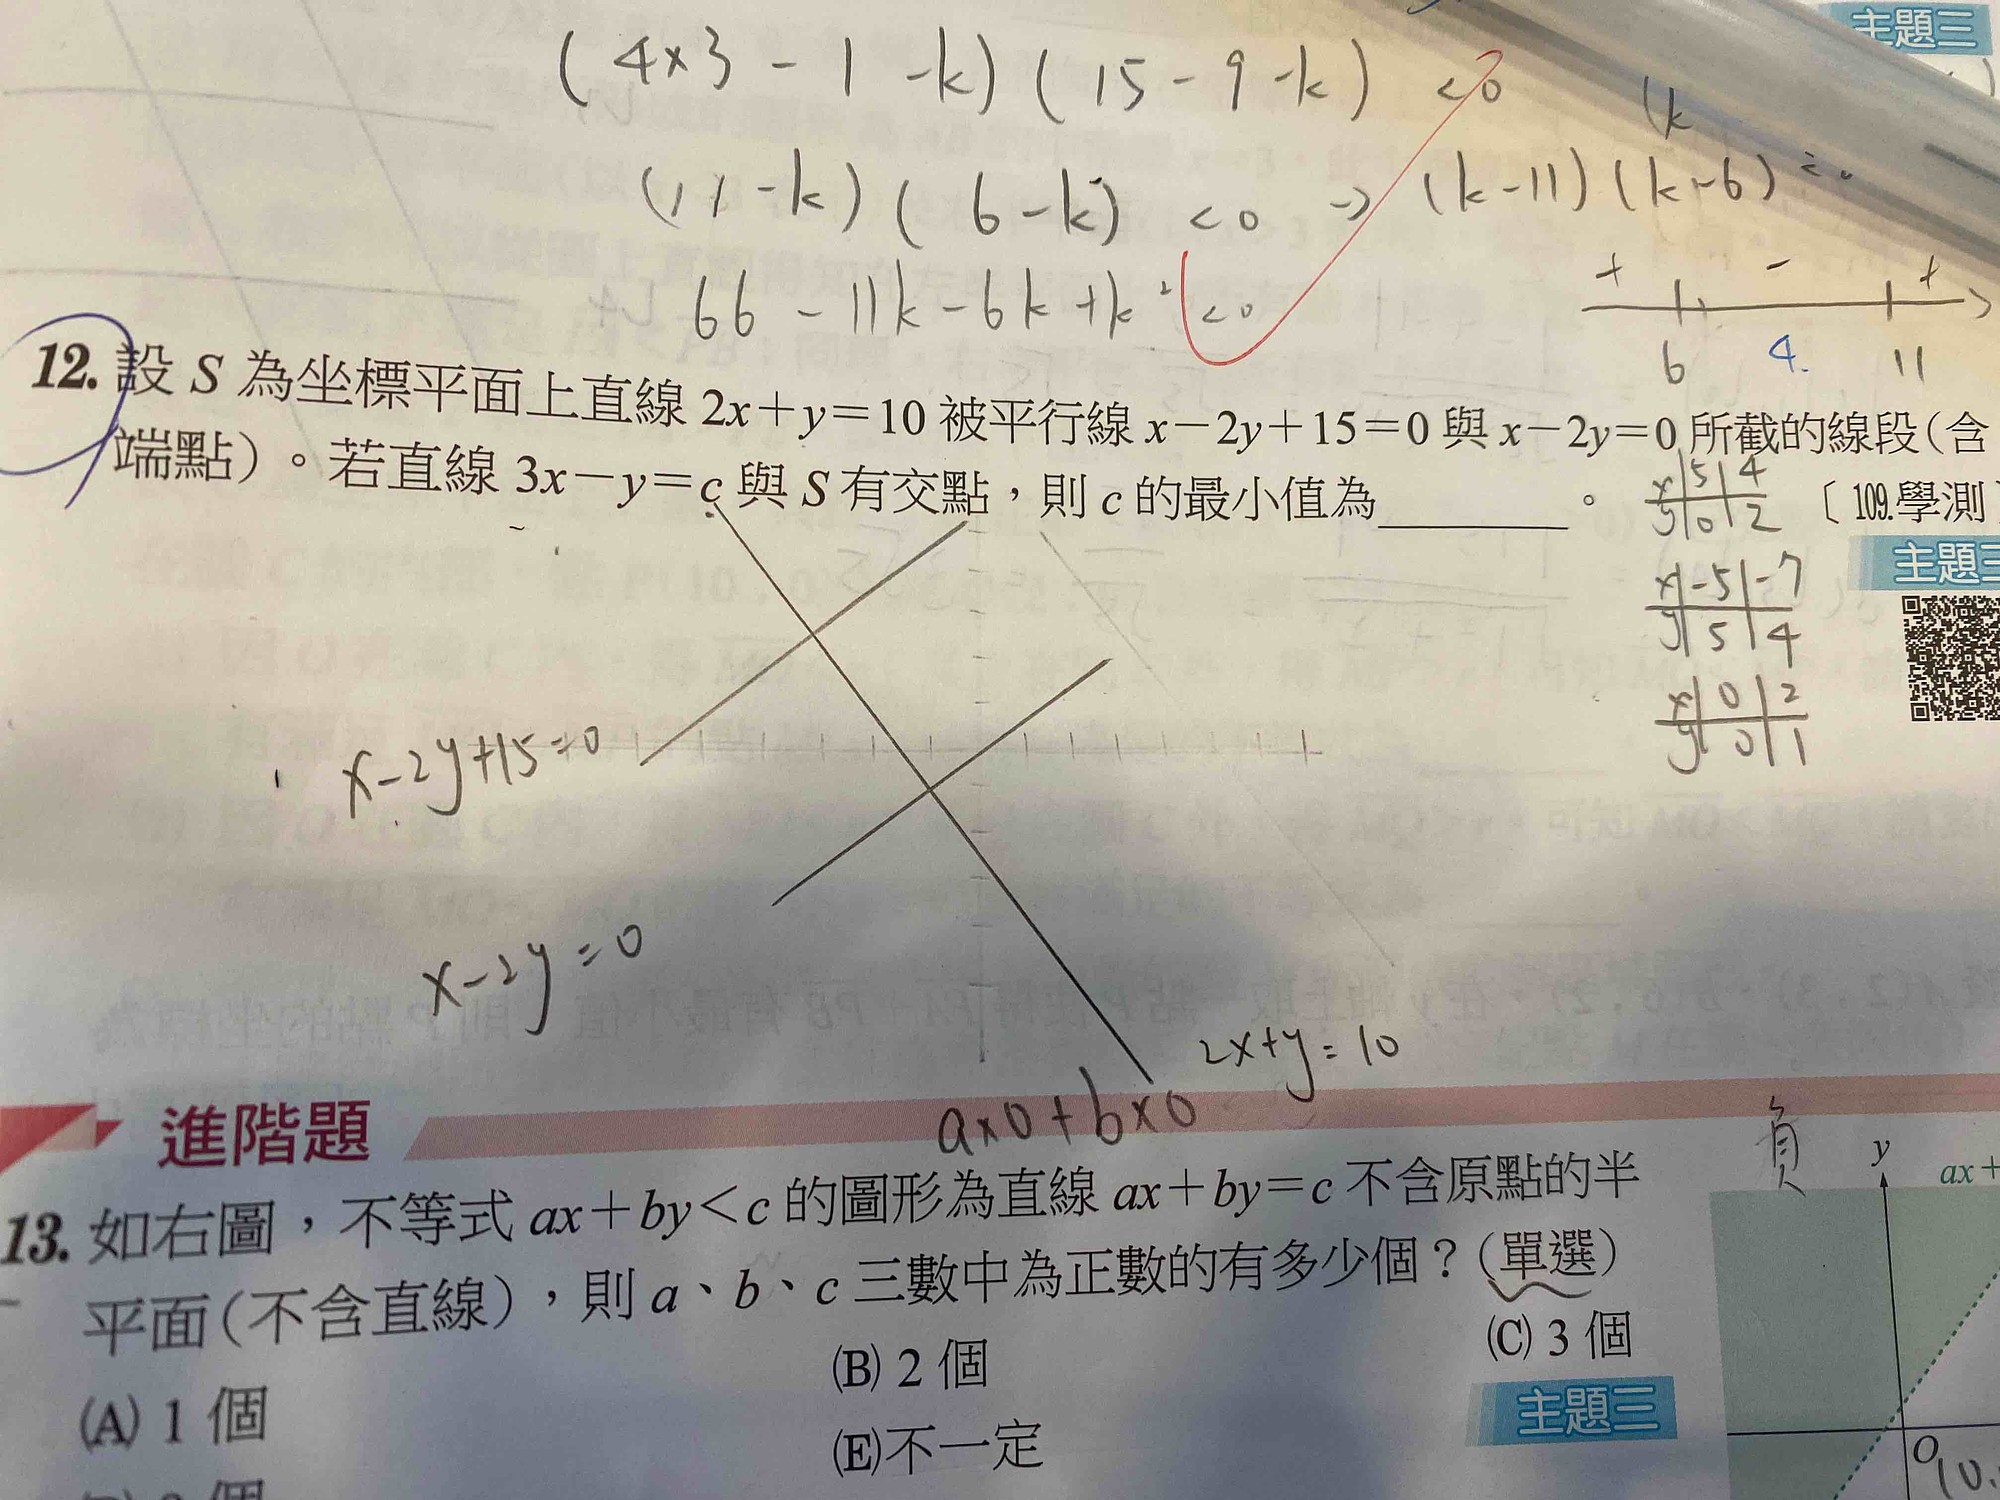 主題三
(4×3-1-k)(15-9-k)<0
(k
(11-k)(6-k)<0 → (k-11)(k-6)
66-11k-6k+k²<0
+ - +
6 4. 11
12. 設 S 為坐標平面上直線 2x+y=10 被平行線 x-2y+15=0 與 x-2y=0 所截的線段(含
端點)。若直線 3x-y=c 與 S 有交點,則 c 的最小值為________。 〔109.學測〕
x 5 4
y 0 2
主題三
x -5 -7
y 5 4
x 0 2
y 0 1
x-2y+15=0
x-2y=0
2x+y=10
a×0+b×0
進階題
負
13. 如右圖,不等式 ax+by<c 的圖形為直線 ax+by=c 不含原點的半
平面(不含直線),則 a、b、c 三數中為正數的有多少個?(單選)
(A) 1 個
(B) 2 個
(C) 3 個
(E)不一定
主題三
y
ax+
O
(0,